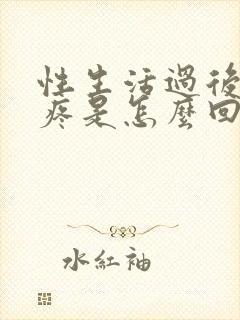 性生活過後
疼是怎麼回
水紅袖